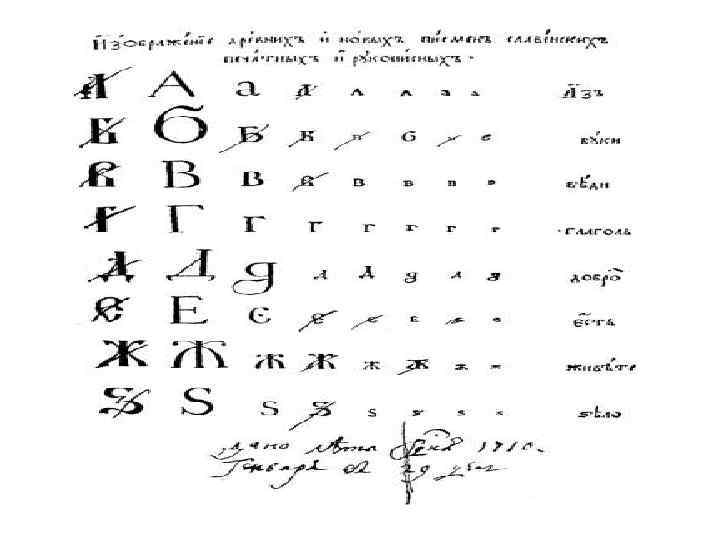 Изображе́нїе дре́внихъ и но́выхъ писме́нъ славе́нскихъ
печа́тныхъ и рукопи́сныхъ.
А А а а а а а а азъ
Б Б Б Б б б б буки
В В В в в в в в вѣди
Г Г г г г г г г глаголь
Д Д д д д д д д добро
Є Е є є є є є є есть
Ж Ж ж ж ж ж ж ж живѣте
Ѕ Ѕ ѕ ѕ ѕ ѕ ѕ ѕ ѕѣло
дано лѣта 1710.
Генваря въ 29 день